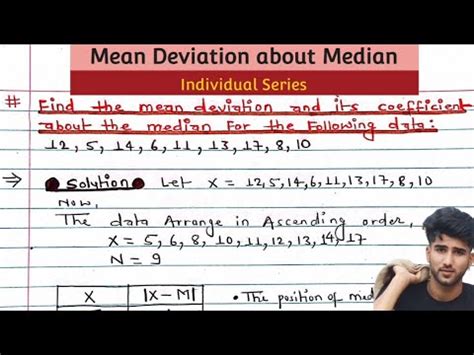 Mean Deviation about Median
Individual Series
# Find the mean deviation and its coefficient
about the median For the Following data:
12, 5, 14, 6, 11, 13, 17, 8, 10
→ Solution Let X = 12,5,14,6,11,13,17,8,10
Now,
The data Arrange in Ascending order,
X = 5, 6, 8, 10, 11, 12, 13, 14, 17
N = 9
X |X - M| • The position of med